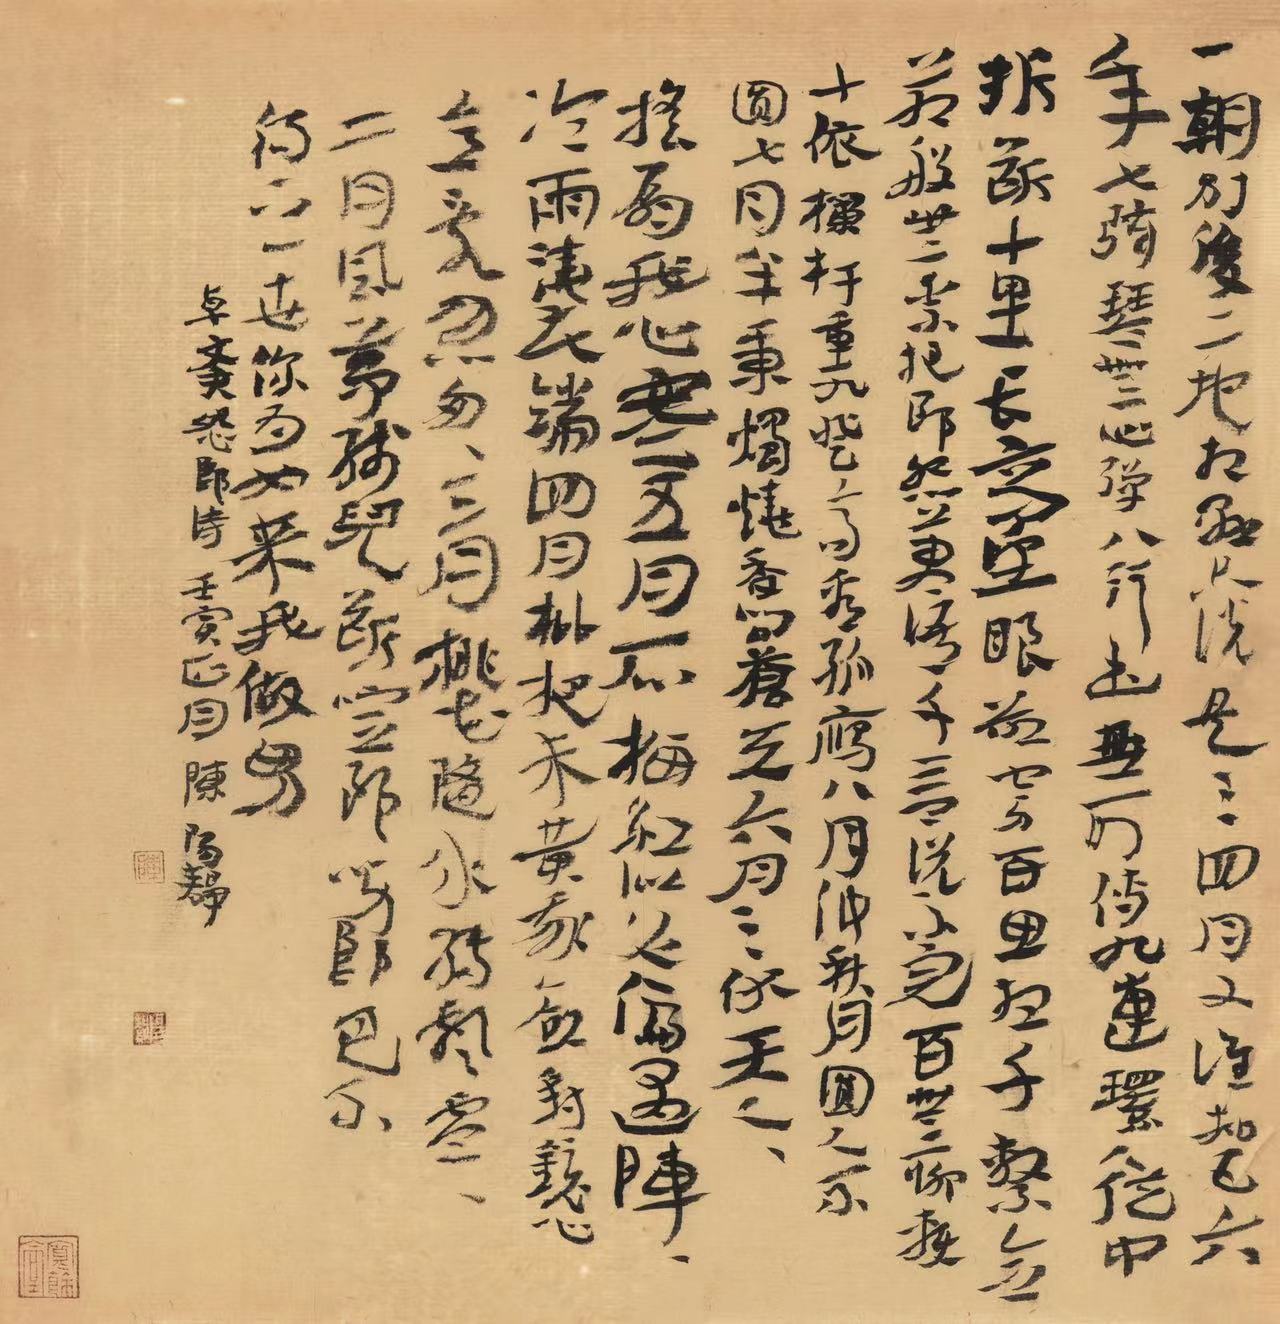 一朝別後二地相懸只說是三四月又誰知五六
年七弦琴無心彈八行書無可傳九連環從中
折斷十里長亭望眼欲穿百思想千繫念
萬般無奈把郎怨萬語千言說不完百無聊賴
十依欄杆重九登高看孤雁八月仲秋月圓人不
圓七月半秉燭燒香問蒼天六月三伏天人、
搖扇我心寒五月石榴紅似火偏遇陣、
冷雨澆花端四月枇杷未黃我欲對鏡心
意亂忽匆、三月桃花隨水轉飄零、
二月風箏線兒斷噫郎呀郎巴不
得下一世你為女來我做男
卓文君怨郎詩 壬寅正月 陳陽靜